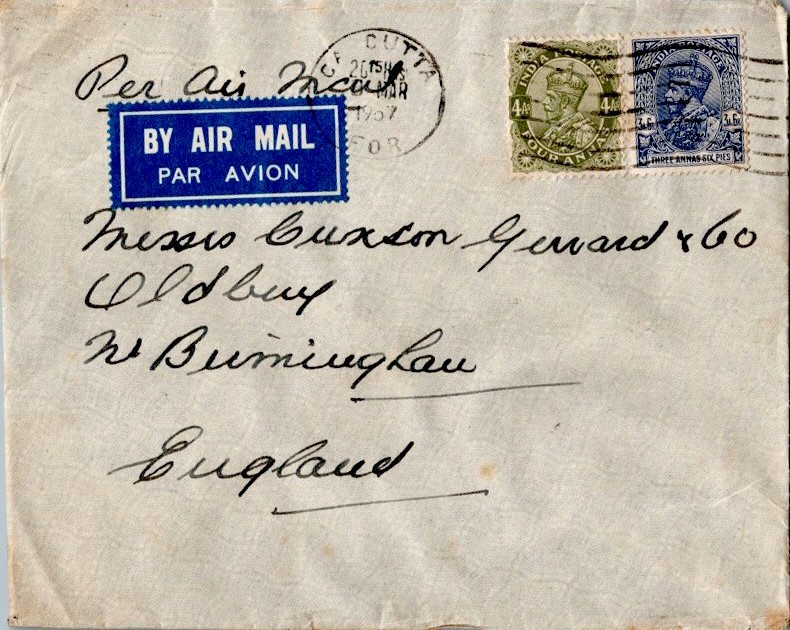 Per Air Mail
CALCUTTA
MAR
1937
BY AIR MAIL
PAR AVION
INDIA POSTAGE
4A 4A
FOUR ANNAS
INDIA POSTAGE
3A.6 3A.6
THREE ANNAS SIX PIES
Messrs Cuxson Gerrard & Co
Oldbury
Nr Birmingham
England